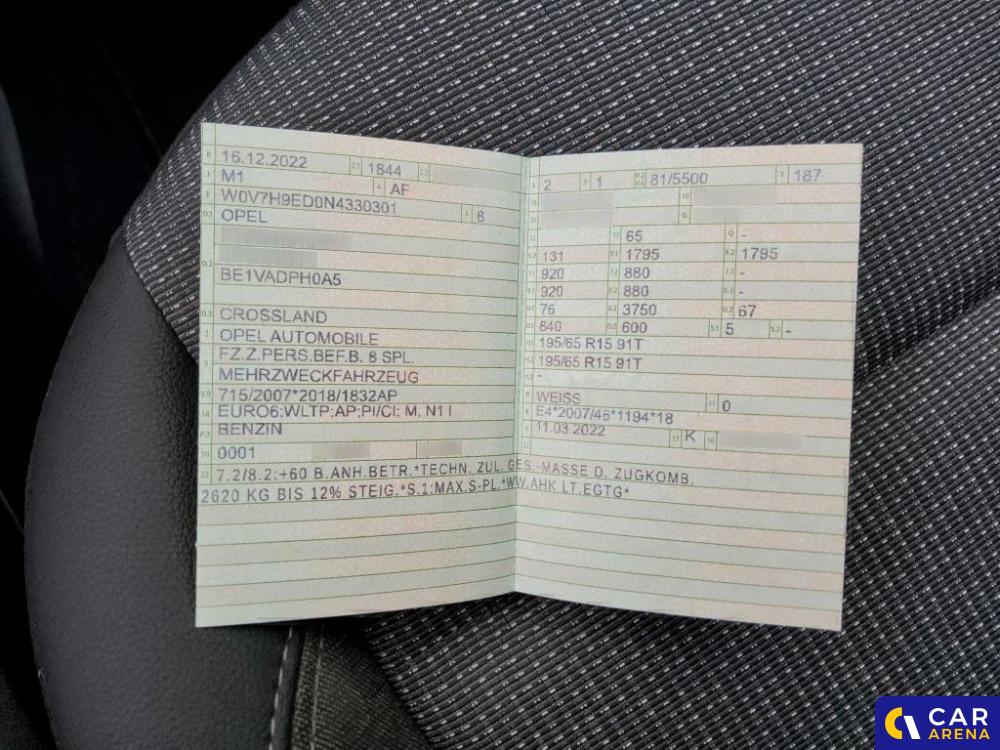 B 16.12.2022 2.1 1844 2.2
J M1 4 AF
E W0V7H9ED0N4330301 3 8
D.1 OPEL
D.2
BE1VADPH0A5
D.3 CROSSLAND
2 OPEL AUTOMOBILE
5 FZ.Z.PERS.BEF.B. 8 SPL.
MEHRZWECKFAHRZEUG
V.9 715/2007*2018/1832AP
14 EURO6;WLTP;AP;PI/CI; M, N1 I
P.3 BENZIN
10 0001
22 7.2/8.2:+60 B.ANH.BETR.*TECHN. ZUL. GES.-MASSE D. ZUGKOMB.
2620 KG BIS 12% STEIG.*S.1:MAX.S-PL.*WW.AHK LT.EGTG*
L 2 9 1 P.2 P.4 81/5500 T 187
18 19
20 G
12 - 13 65 Q -
V.7 131 F.1 1795 F.2 1795
7.1 920 7.2 880 7.3 -
8.1 920 8.2 880 8.3 -
U.1 76 U.2 3750 U.3 67
O.1 840 O.2 600 S.1 5 S.2 -
15.1 195/65 R15 91T
15.2 195/65 R15 91T
15.3 -
R WEISS 11 0
K E4*2007/46*1194*18
6 11.03.2022 17 K 16
21
CAR
ARENA